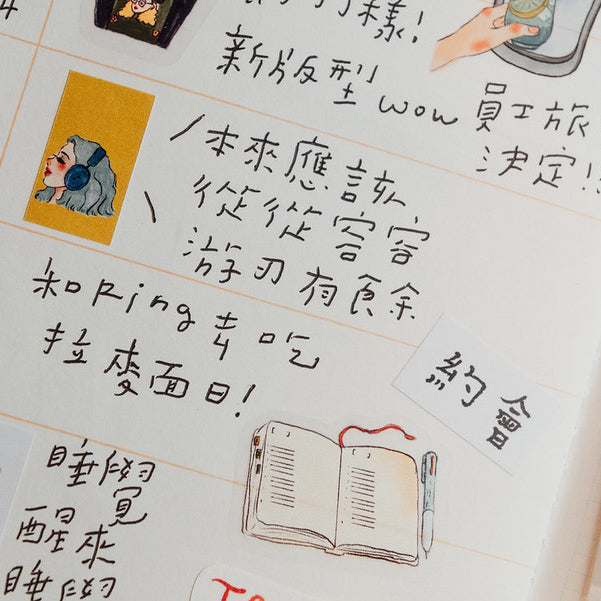 樣!
新版型 wow
員工旅
決定!!
本來應該
從從容容
游刃有餘
和Ring去吃
拉麥面日!
約會
睡覺
醒來
睡覺